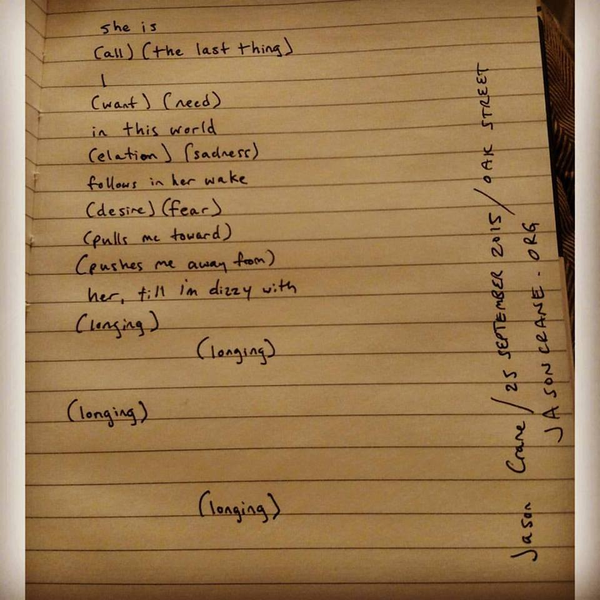 she is
(all) (the last thing)
I
(want) (need)
in this world
(elation) (sadness)
follows in her wake
(desire) (fear)
(pulls me toward)
(pushes me away from)
her, till i'm dizzy with
(longing)
(longing)
(longing)
(longing)
Jason Crane / 25 SEPTEMBER 2015 / OAK STREET
JASONCRANE.ORG